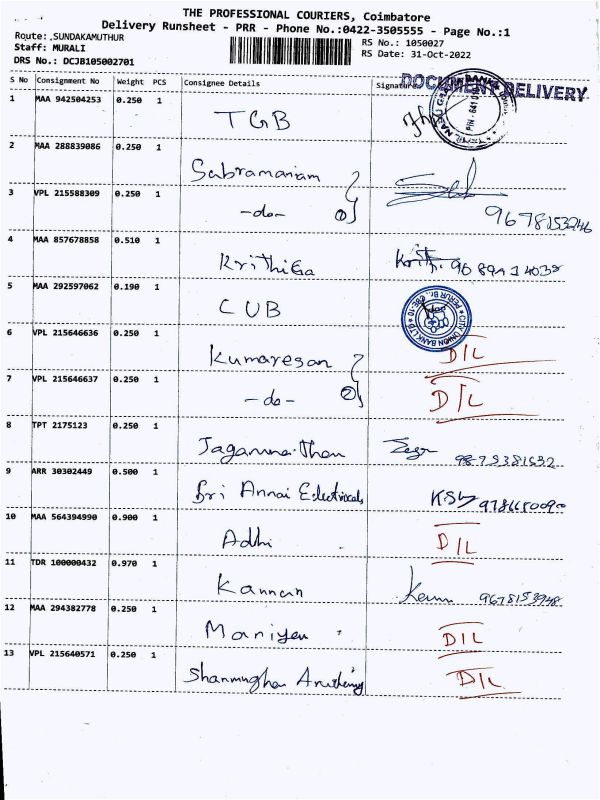 THE PROFESSIONAL COURIERS, Coimbatore
Delivery Runsheet - PRR - Phone No.:0422-3505555 - Page No.:1
Route: .SUNDAKAMUTHUR
RS No.: 1050027
Staff: MURALI
RS Date: 31-Oct-2022
DRS No.: DCJB105002701
S No Consignment No Weight PCS Consignee Details Signature
DOCUMENT DELIVERY
1 MAA 942504253 0.250 1 TGB
2 MAA 288839086 0.250 1 Sabramaniam
3 VPL 215588309 0.250 1 -do- 9678153246
4 MAA 857678858 0.510 1 KriThiGa
5 MAA 292597062 0.190 1 CUB
CITY UNION BANK LTD
6 VPL 215646636 0.250 1 Kumaresan D/L
7 VPL 215646637 0.250 1 -do- ② D/L
8 TPT 2175123 0.250 1 JagannaThan
9 ARR 30302449 0.500 1 Sri Annai Electricals
10 MAA 564394990 0.900 1 Adhi D/L
11 TDR 100000432 0.970 1 Kannan 9678153948
12 MAA 294382778 0.250 1 Maniyen D/L
13 VPL 215640571 0.250 1 Shanmugha D/L